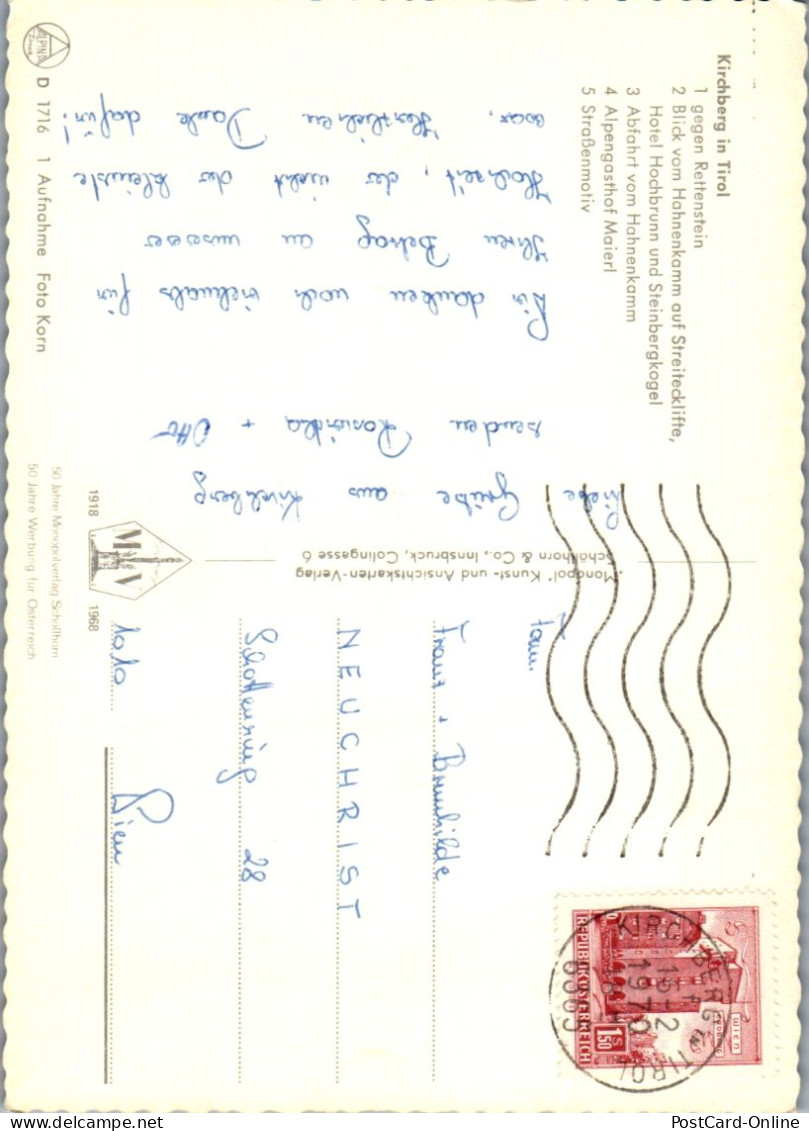 Kirchberg in Tirol
1 gegen Rettenstein
2 Blick vom Hahnenkamm auf Streitecklifte,
Hotel Hochbrunn und Steinbergkogel
3 Abfahrt vom Hahnenkamm
4 Alpengasthof Maierl
5 Straßenmotiv
Liebe Grüße aus Kirchberg
senden Roswitha + Otto
Wir danken noch vielmals für
Ihren Betrag an unserer
Hochzeit, der nicht der kleinste
war. Herzlichen Dank dafür!
ALPINA
D 1716 1 Aufnahme Foto Korn
"Monopol" Kunst- und Ansichtskarten-Verlag
Schöllhorn & Co., Innsbruck, Colingasse 6
1918 MV 1968
50 Jahre Monopolverlag Schöllhorn
50 Jahre Werbung für Österreich
Fam.
Franz + Brunhilde
NEUCHRIST
Schottenring 28
1010 Wien
KIRCHBERG IN TIROL
15-2
1970
6365
WIEN
REPUBLIK ÖSTERREICH
1s50
PostCard-Online